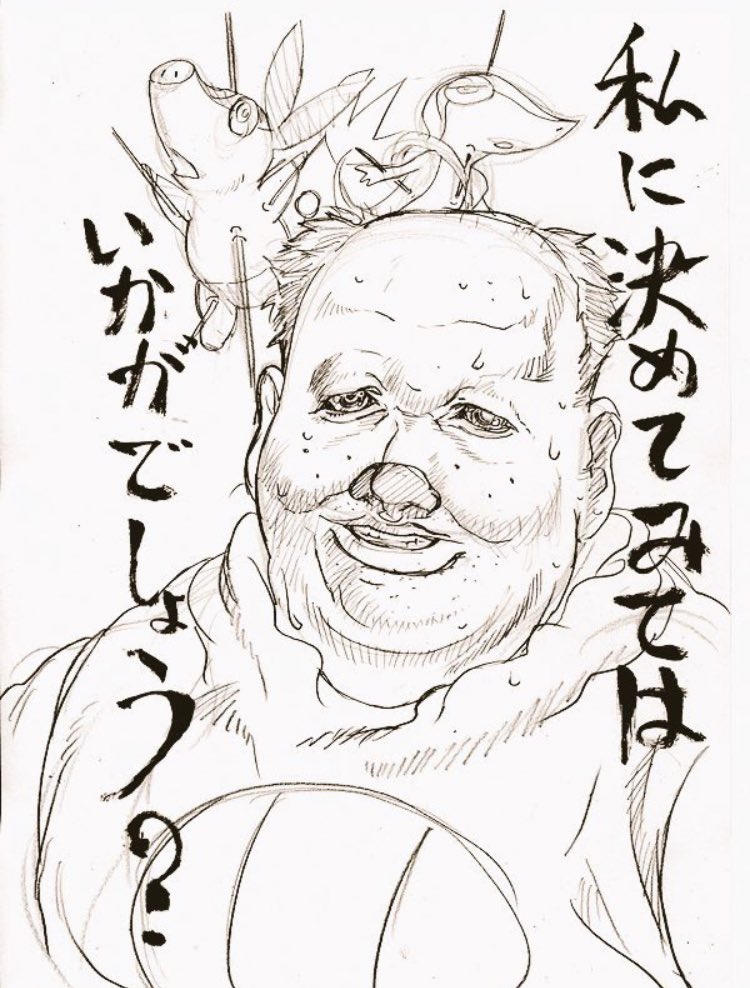 私に決めてみては
いかがでしょう?